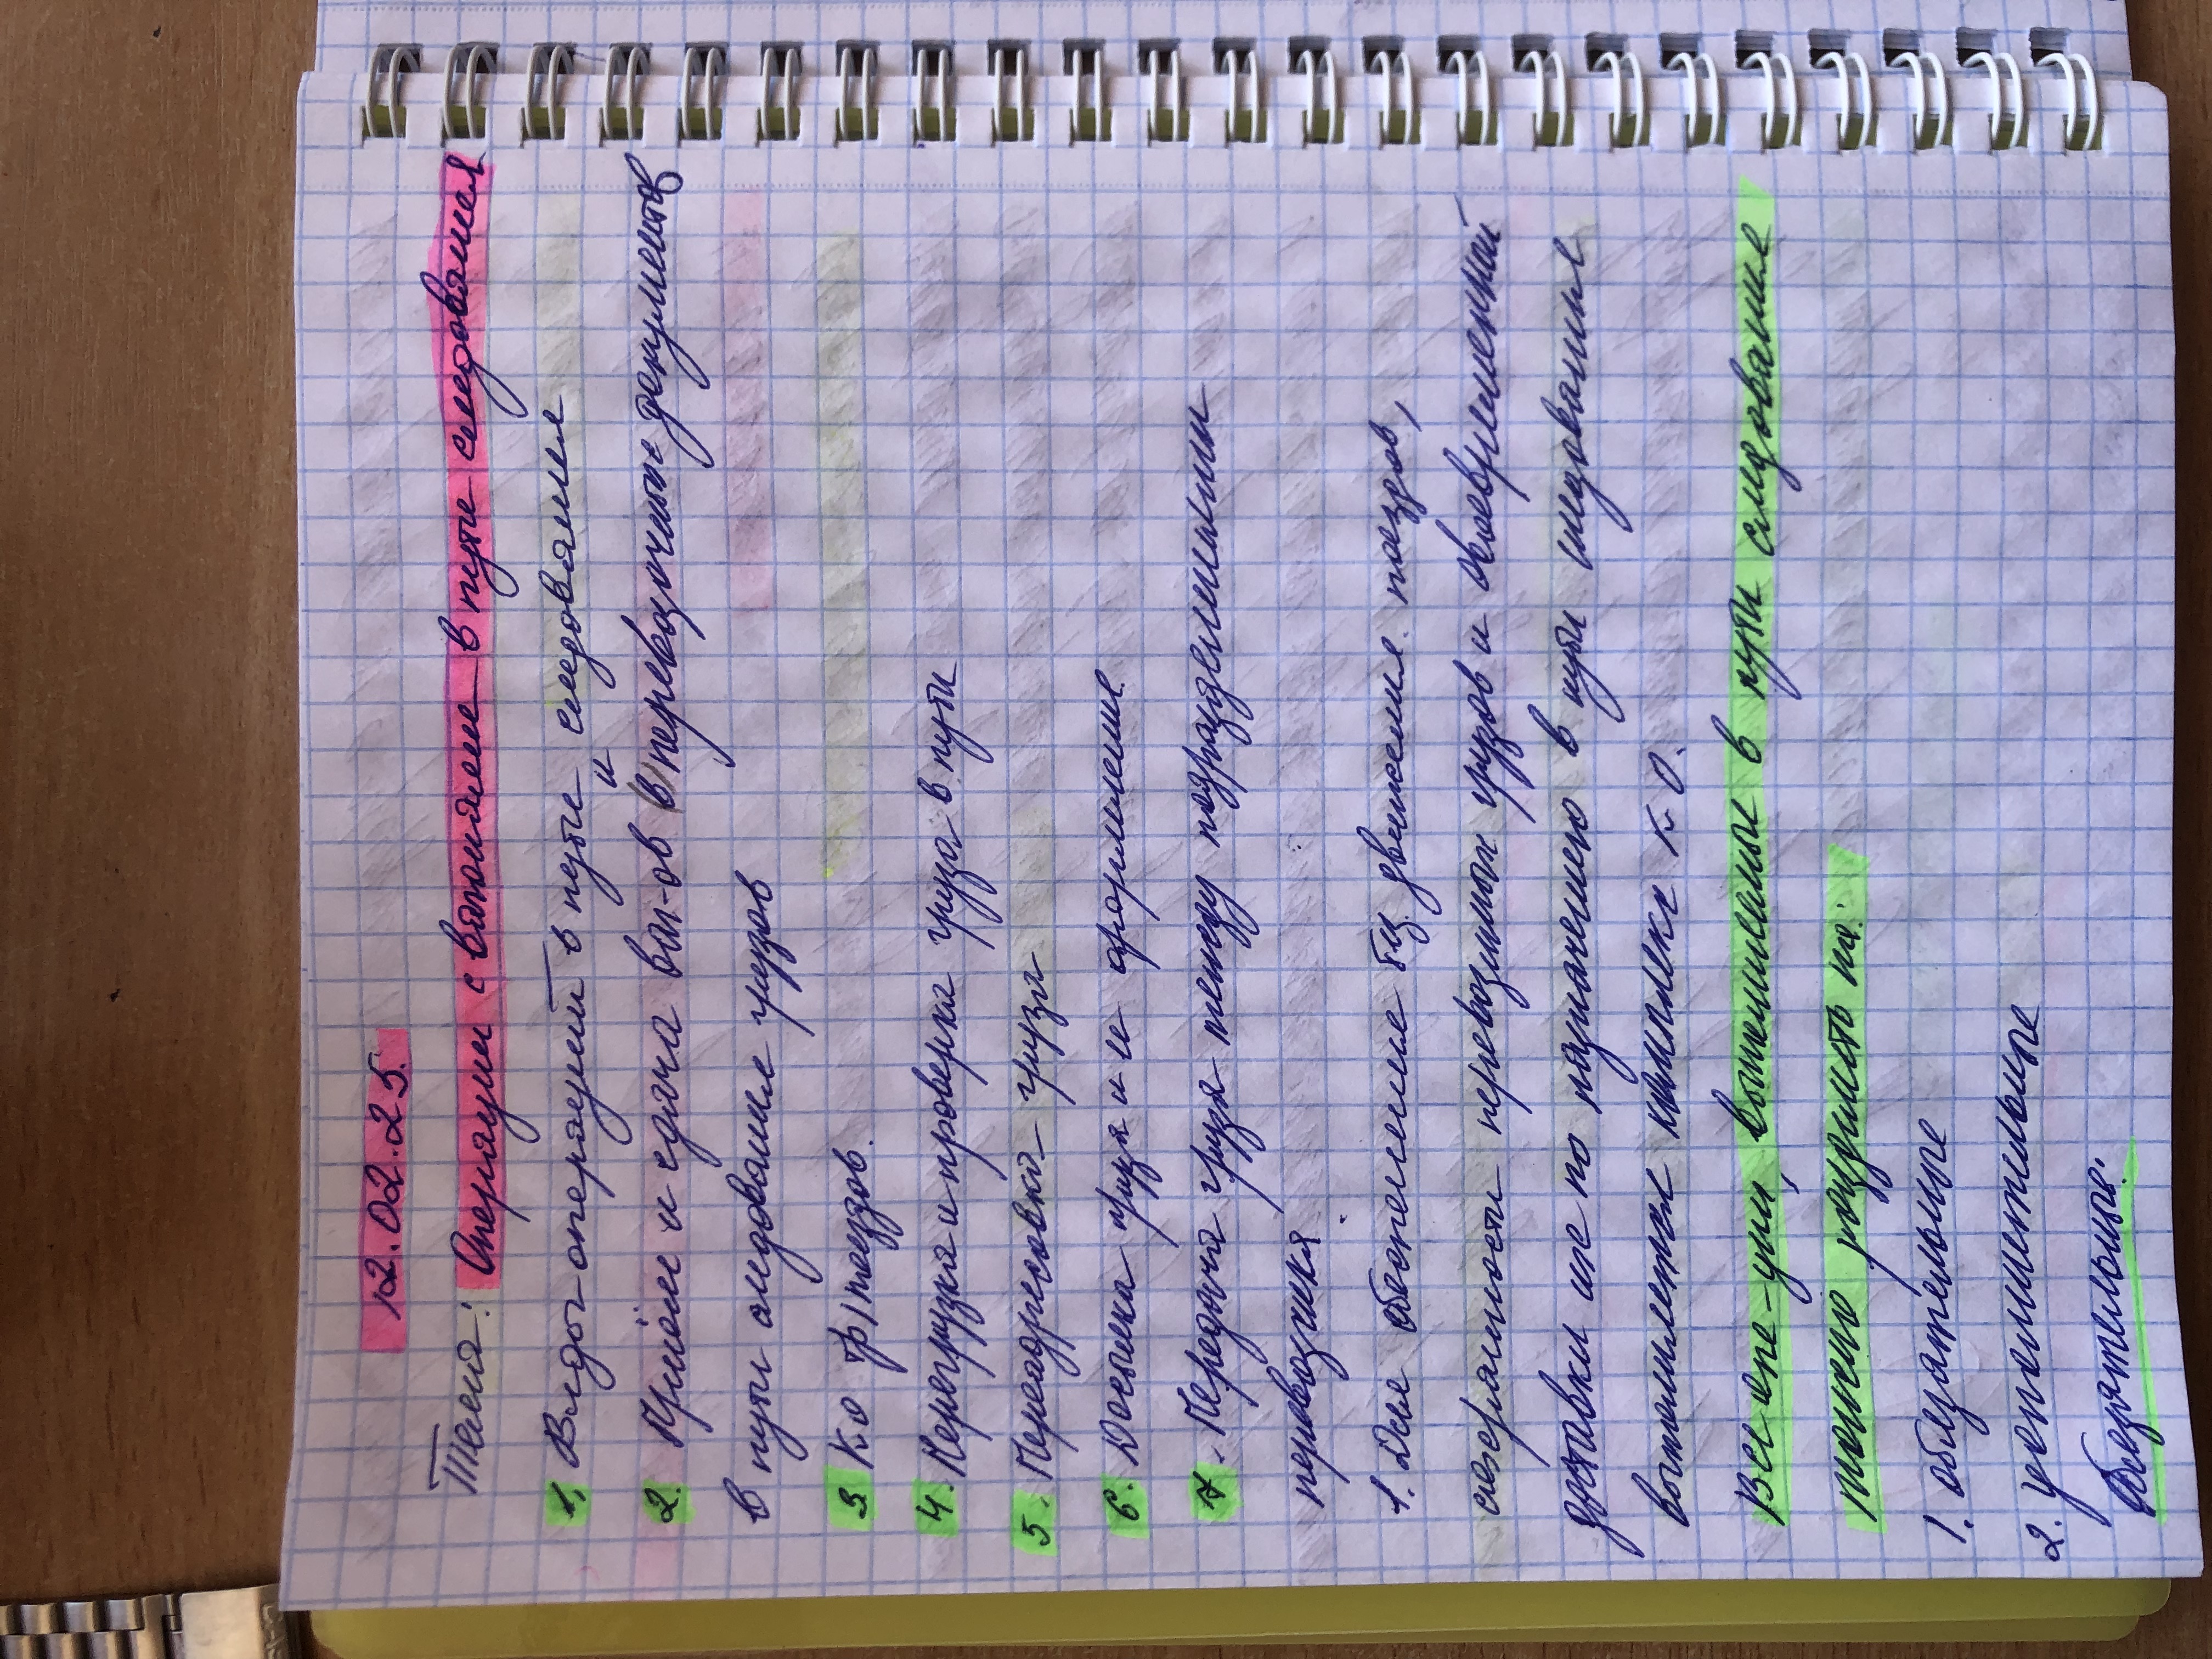 12.02.25.
Тема: Операции с вагонами в пути следования
1. Виды операций в пути следования
2. Приём и сдача ваг-ов и перевозочные документов
в пути следование грузов
3 Ко гр/поездов.
4. Перегрузка и проверка груза в пути
5. Переадресовка груза
6. Досылка груза и её оформление.
7. Передача груза между подразделениями
перевозчика.
1. Для обеспечение бц. движение поездов,
сохранности перевозимых грузов и своевременной
доставки их по назначению в пути следования
выполняется комплекс К О.
Все опе-ции, выполняемые в пути следование
можно разделить на:
1. обязательные
2. дополнительные
Обязательные: